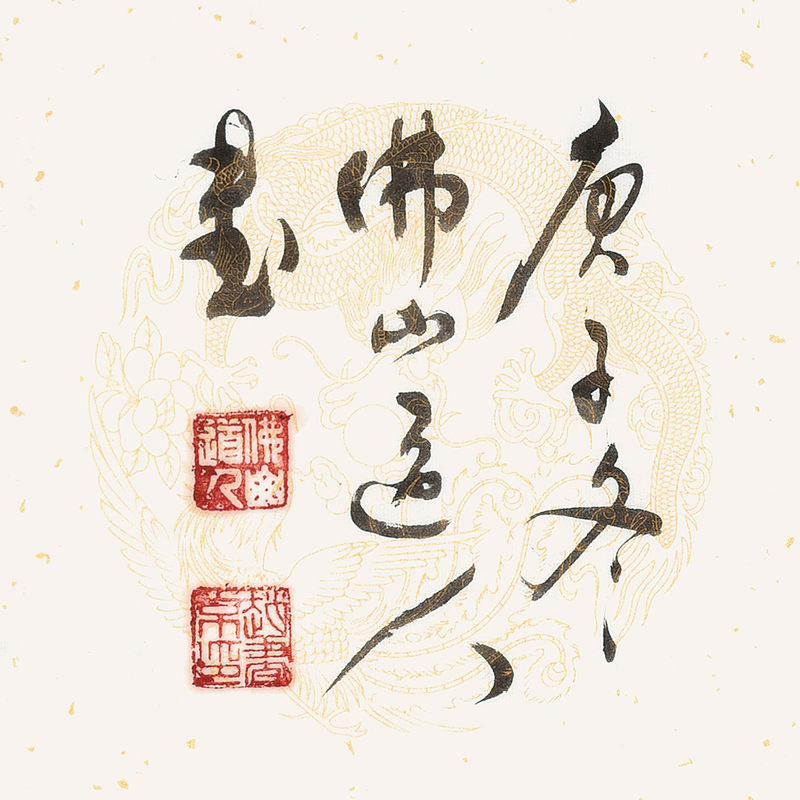 庚子冬
佛山道人
書
佛山
道人